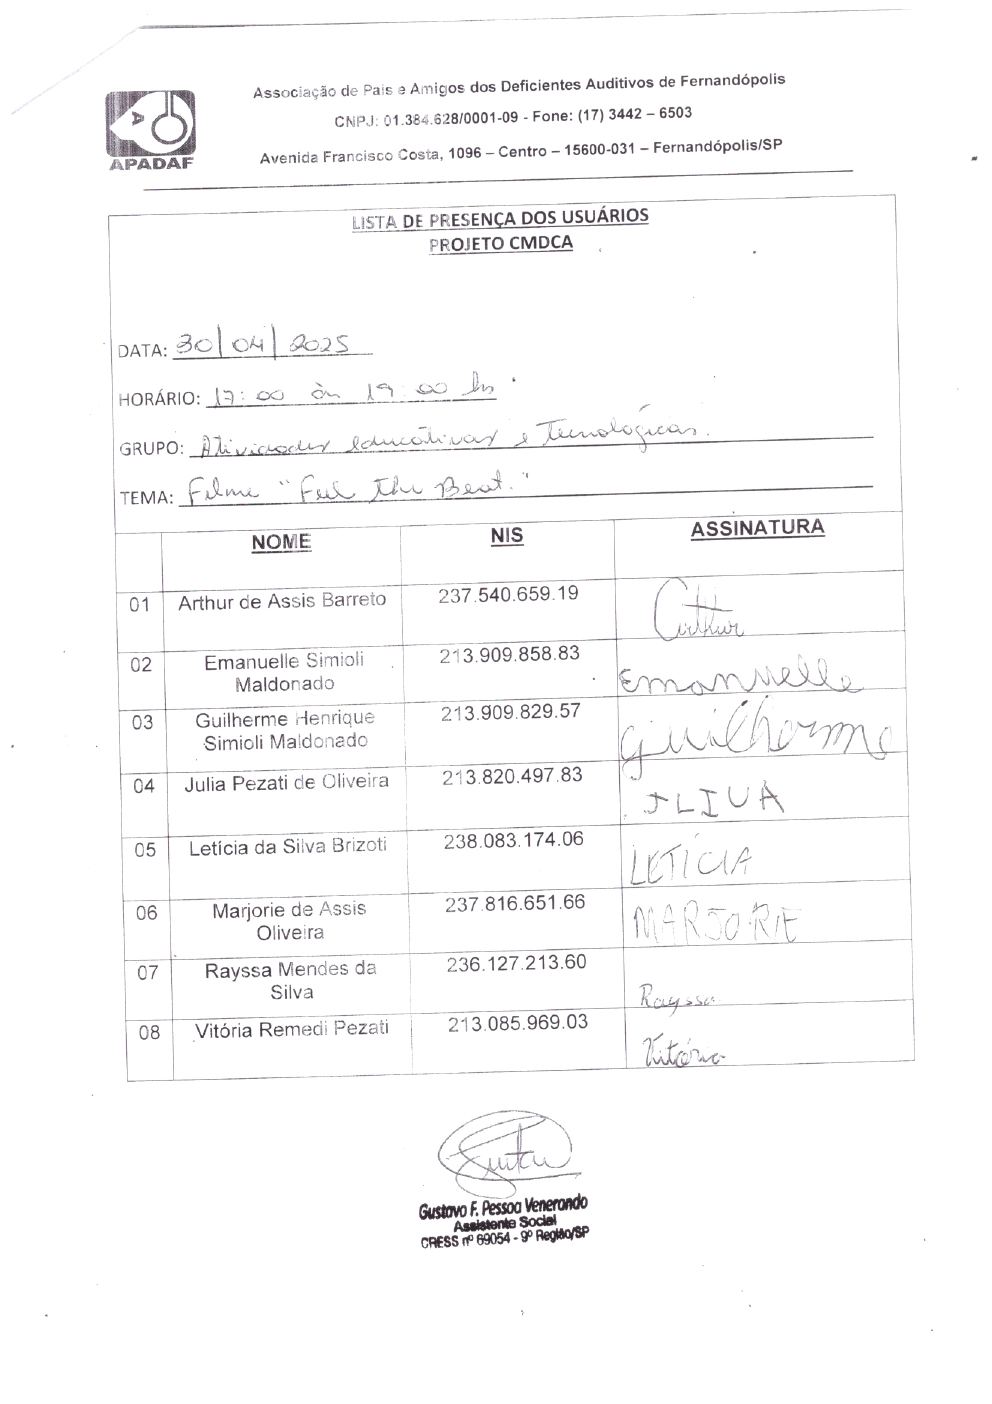 Associação de Pais e Amigos dos Deficientes Auditivos de Fernandópolis
CNPJ: 01.384.628/0001-09 - Fone: (17) 3442 – 6503
Avenida Francisco Costa, 1096 – Centro – 15600-031 – Fernandópolis/SP
APADAF
LISTA DE PRESENÇA DOS USUÁRIOS
PROJETO CMDCA
DATA: 30/04/2025
HORÁRIO: 17:00 às 19:00 hs
GRUPO: Atividades educativas e Tecnológicas.
TEMA: Filme "Feel The Beat."
NOME NIS ASSINATURA
01 Arthur de Assis Barreto 237.540.659.19 Arthur
02 Emanuelle Simioli Maldonado 213.909.858.83 Emanuelle
03 Guilherme Henrique Simioli Maldonado 213.909.829.57 Guilherme
04 Julia Pezati de Oliveira 213.820.497.83 JLIUA
05 Letícia da Silva Brizoti 238.083.174.06 LETÍCIA
06 Marjorie de Assis Oliveira 237.816.651.66 MARJORIE
07 Rayssa Mendes da Silva 236.127.213.60 Rayssa
08 Vitória Remedi Pezati 213.085.969.03 Vitória
Gustavo F. Pessoa Venerando
Assistente Social
CRESS nº 69054 - 9º Região/SP